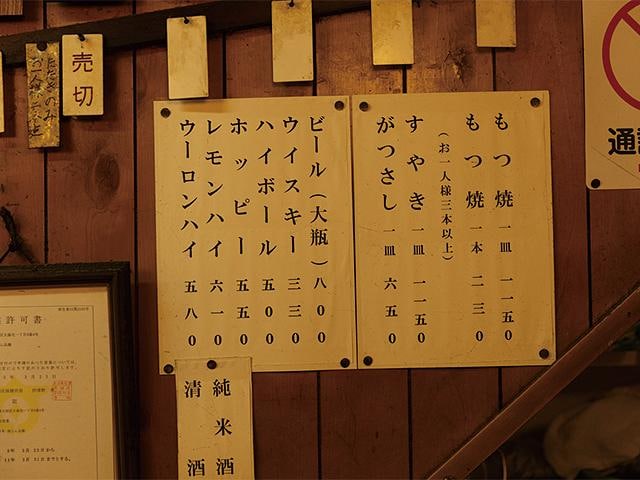 売切
たたきのみ
お一人様
もつ焼 一皿 一一五0
もつ焼 一本 二三0
(お一人様三本以上)
すやき 一皿 一一五0
がつさし 一皿 六五0
ビール(大瓶)八00
ウイスキー 三三0
ハイボール 五00
ホッピー 五五0
レモンハイ 六一0
ウーロンハイ 五八0
純米酒
清酒
許可書
通